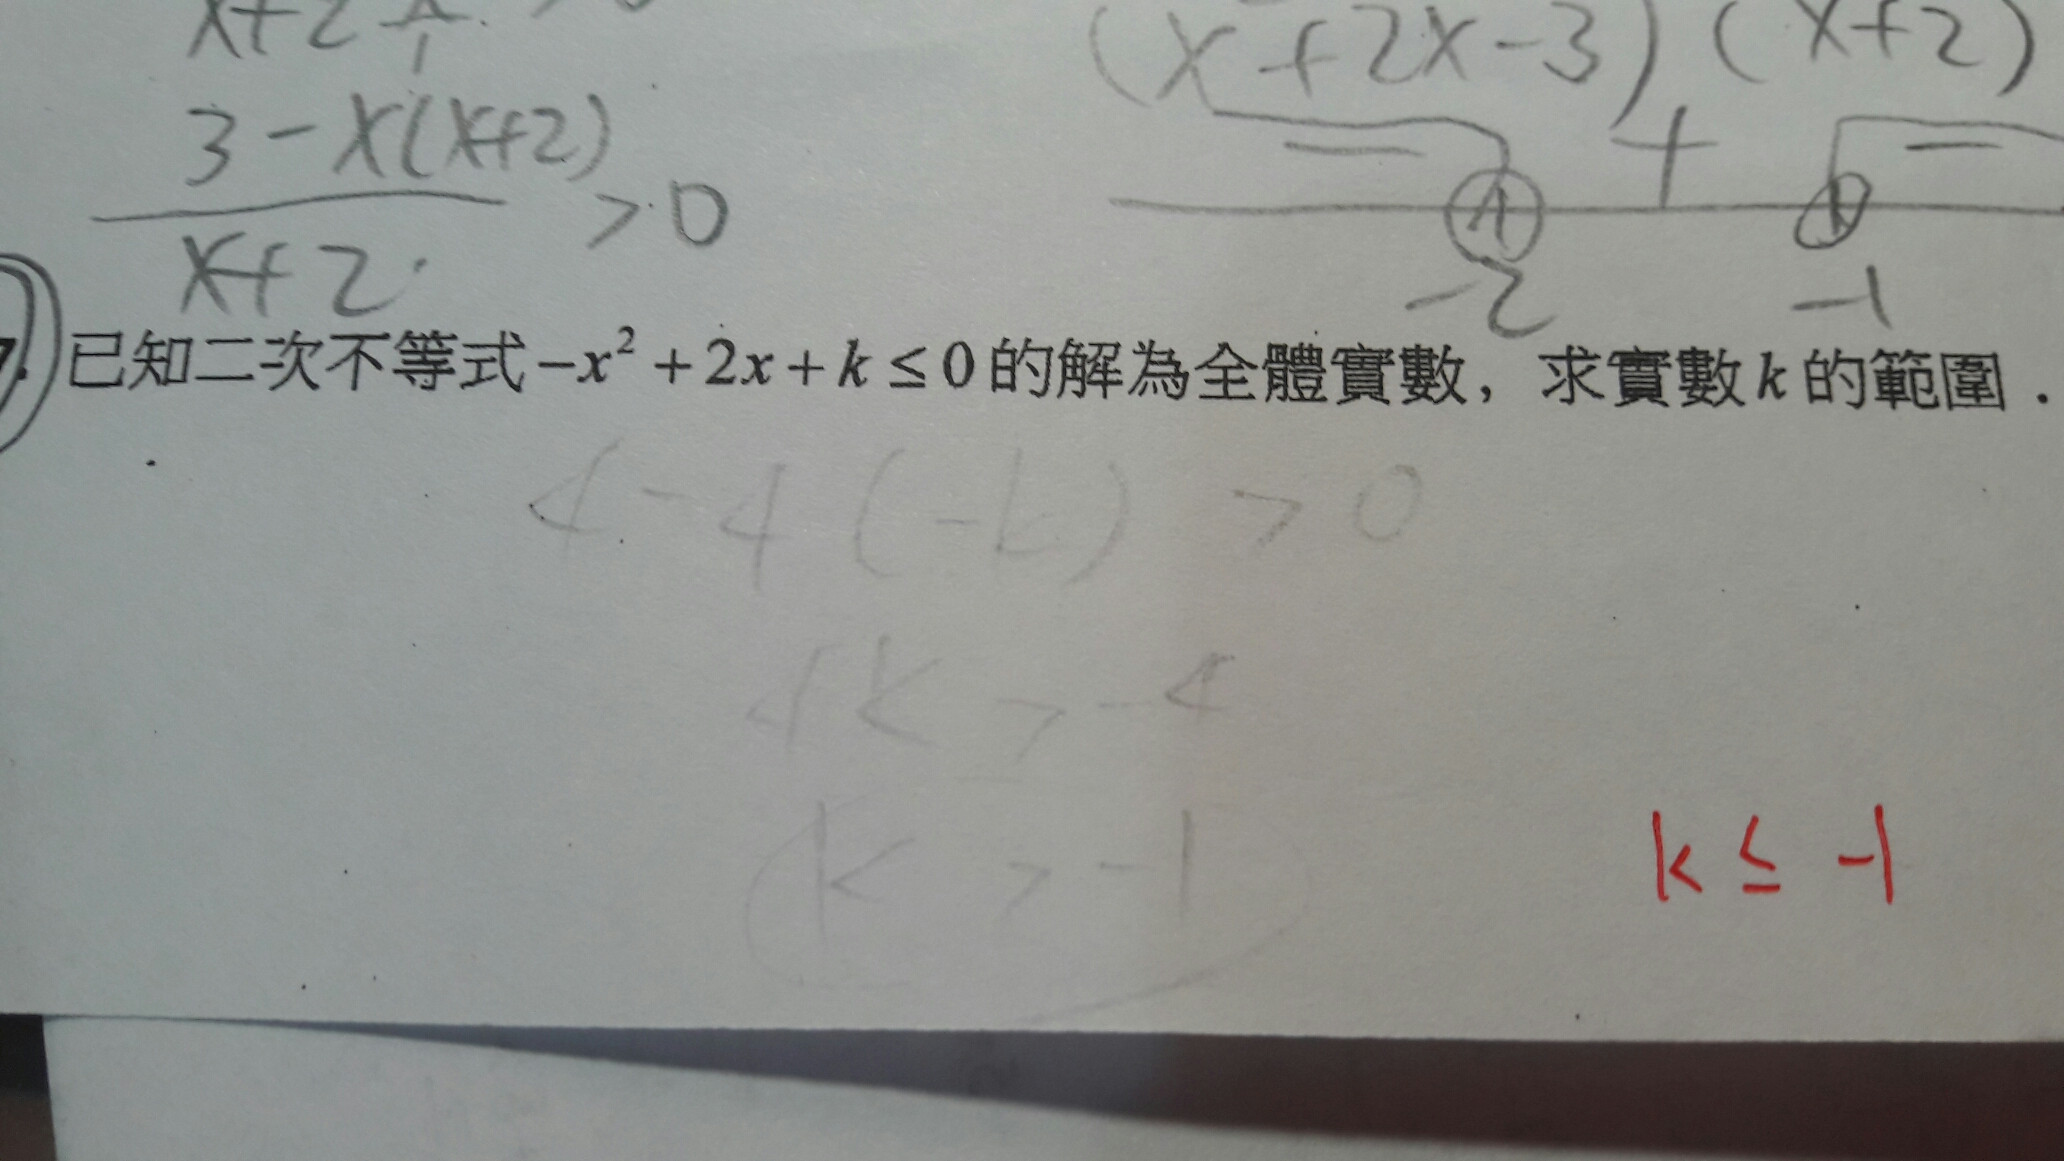 x+2
(x+2x-3)(x+2)
3-x(x+2)
x+2
>0
- + -
-2 -1
7. 已知二次不等式 -x² + 2x + k ≤ 0 的解為全體實數，求實數 k 的範圍．
4-4(-k) >0
4k > -4
k > -1
k ≤ -1